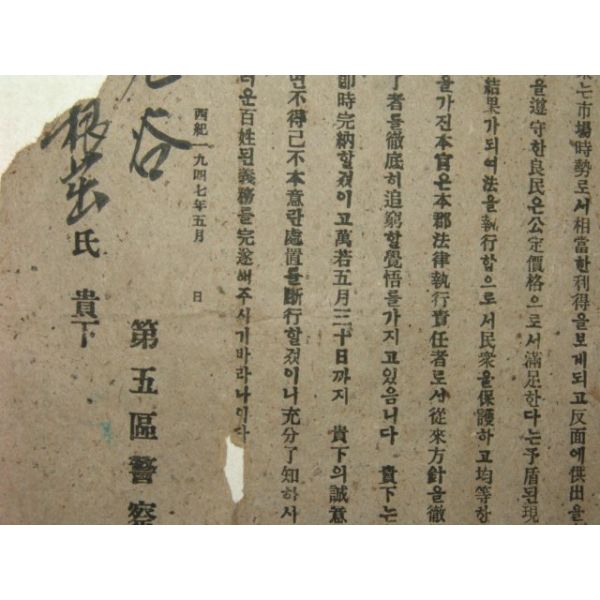 는市場時勢로서相當한利得을보게되고反面에供出을
을遵守한良民은公定價格으로서滿足한다는矛盾된現
結果가되여法을執行함으로서民衆을保護하고均等한
을가진本官은本郡法律執行責任者로서從來方針을徹
了者를徹底히追窮할覺悟를가지고있음니다 貴下는
即時完納할것이고萬若五月三十日까지 貴下의誠意
면不得已不本意란處置를斷行할겠이니充分了知하사
러운百姓된義務를完遂해주시기바라나이다
西紀一九四七年五月 日
第五區警察
谷
根 氏 貴下